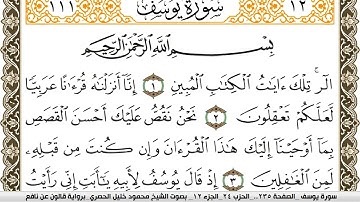 ١١١ سُورَةُ يُوسُفَ ١٢
بِسْمِ اللَّهِ الرَّحْمَٰنِ الرَّحِيمِ
الٓر تِلْكَ ءَايَٰتُ الْكِتَٰبِ الْمُبِينِ ١ إِنَّا أَنزَلْنَٰهُ قُرْءَٰنًا عَرَبِيًّا
لَّعَلَّكُمْ تَعْقِلُونَ ٢ نَحْنُ نَقُصُّ عَلَيْكَ أَحْسَنَ الْقَصَصِ
بِمَا أَوْحَيْنَا إِلَيْكَ هَٰذَا الْقُرْءَانَ وَإِن كُنتَ مِن قَبْلِهِ
لَمِنَ الْغَٰفِلِينَ ٣ إِذْ قَالَ يُوسُفُ لِأَبِيهِ يَٰأَبَتِ إِنِّي رَأَيْتُ
سورة يوسف _ الصفحة ٢٣٥ .. الحزب ٢٤ _ الجزء ١٢ _ بصوت الشيخ محمود خليل الحصري برواية قالون عن نافع